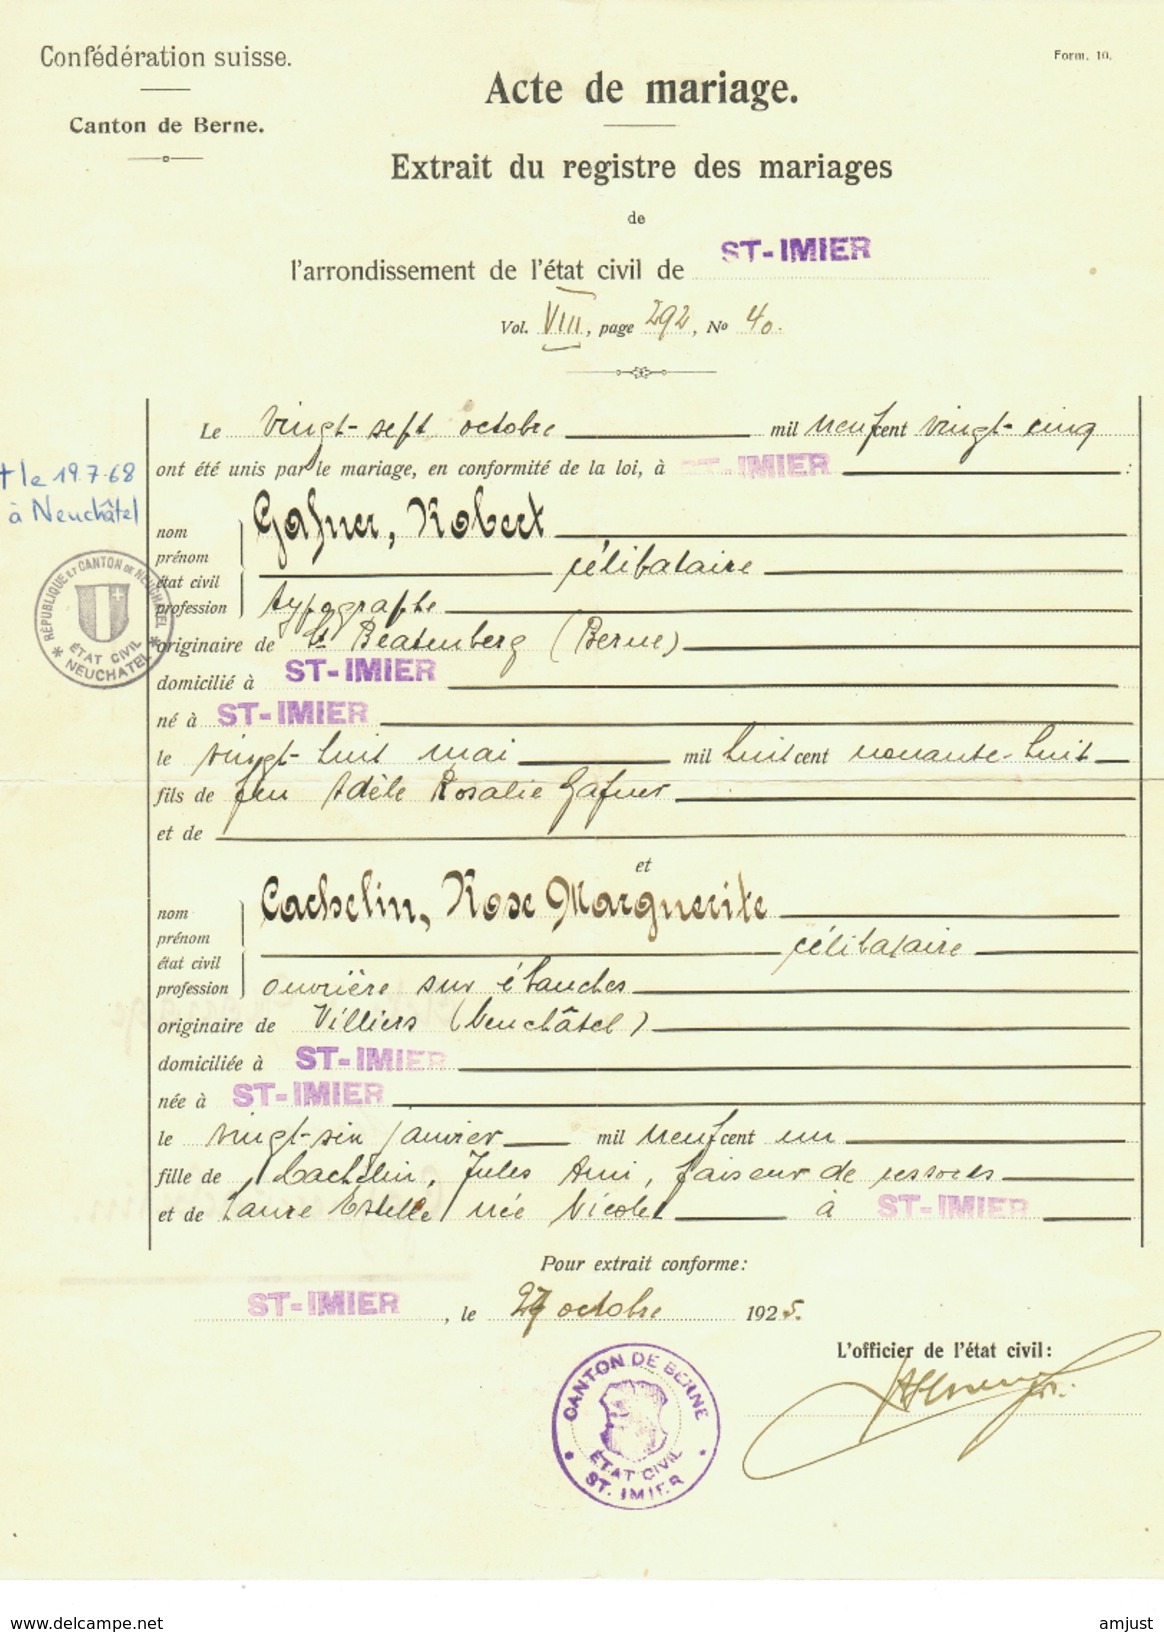 Confédération suisse.
Form. 10.
Acte de mariage.
Canton de Berne.
Extrait du registre des mariages
de
l'arrondissement de l'état civil de ST-IMIER
Vol. VIII, page 292, No 40.
Le vingt-sept octobre mil neufcent vingt-cinq
ont été unis par le mariage, en conformité de la loi, à ST-IMIER :
† le 19.7.68
à Neuchâtel
nom Gafner, Robert
prénom
état civil célibataire
profession typographe
RÉPUBLIQUE ET CANTON DE NEUCHATEL
ÉTAT CIVIL
* NEUCHATEL *
originaire de St Beatenberg (Berne)
domicilié à ST-IMIER
né à ST-IMIER
le vingt-huit mai mil huitcent nonante-huit
fils de feu Adèle Rosalie Gafner
et de
et
nom Cachelin, Rose Marguerite
prénom
état civil célibataire
profession ouvrière sur ébauches
originaire de Villiers (Neuchâtel)
domiciliée à ST-IMIER
née à ST-IMIER
le vingt-six janvier mil neufcent un
fille de Cachelin, Jules Ami, faiseur de ressorts
et de Laure Estelle née Nicolet à ST-IMIER
Pour extrait conforme:
ST-IMIER, le 27 octobre 1925.
L'officier de l'état civil:
CANTON DE BERNE
ÉTAT CIVIL
ST. IMIER
www.delcampe.net
amjust